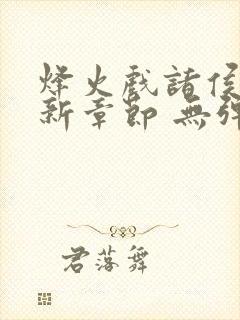 烽火戲諸侯
新章節 無彈
君落舞